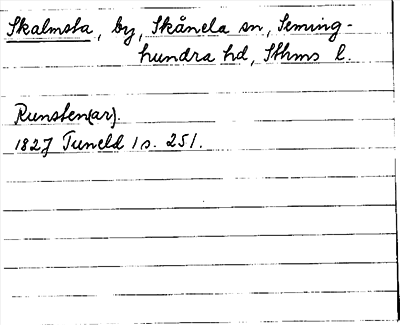 Skalmsta, by, Skånela sn, Seming-
hundra hd, Sthms l.
Runsten(ar).
1827 Tuneld 1 s. 251.